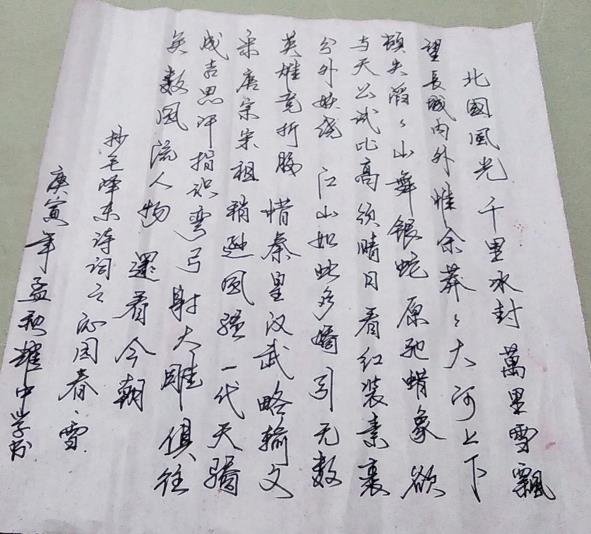 北國風光 千里冰封 萬里雪飄
望長城内外 惟余莽々 大河上下
頓失滔々 山舞銀蛇 原驰蜡象 欲
与天公试比高 须晴日看红装素裹
分外妖娆 江山如此多嬌 引无数
英雄竞折腰 惜秦皇汉武 略输文
采 唐宗宋祖 稍逊風骚 一代天骄
成吉思汗 指识弯弓射大雕 俱往
矣 数風流人物 還看今朝
抄毛泽东诗词之沁园春·雪
庚寅年孟秋耀中学书